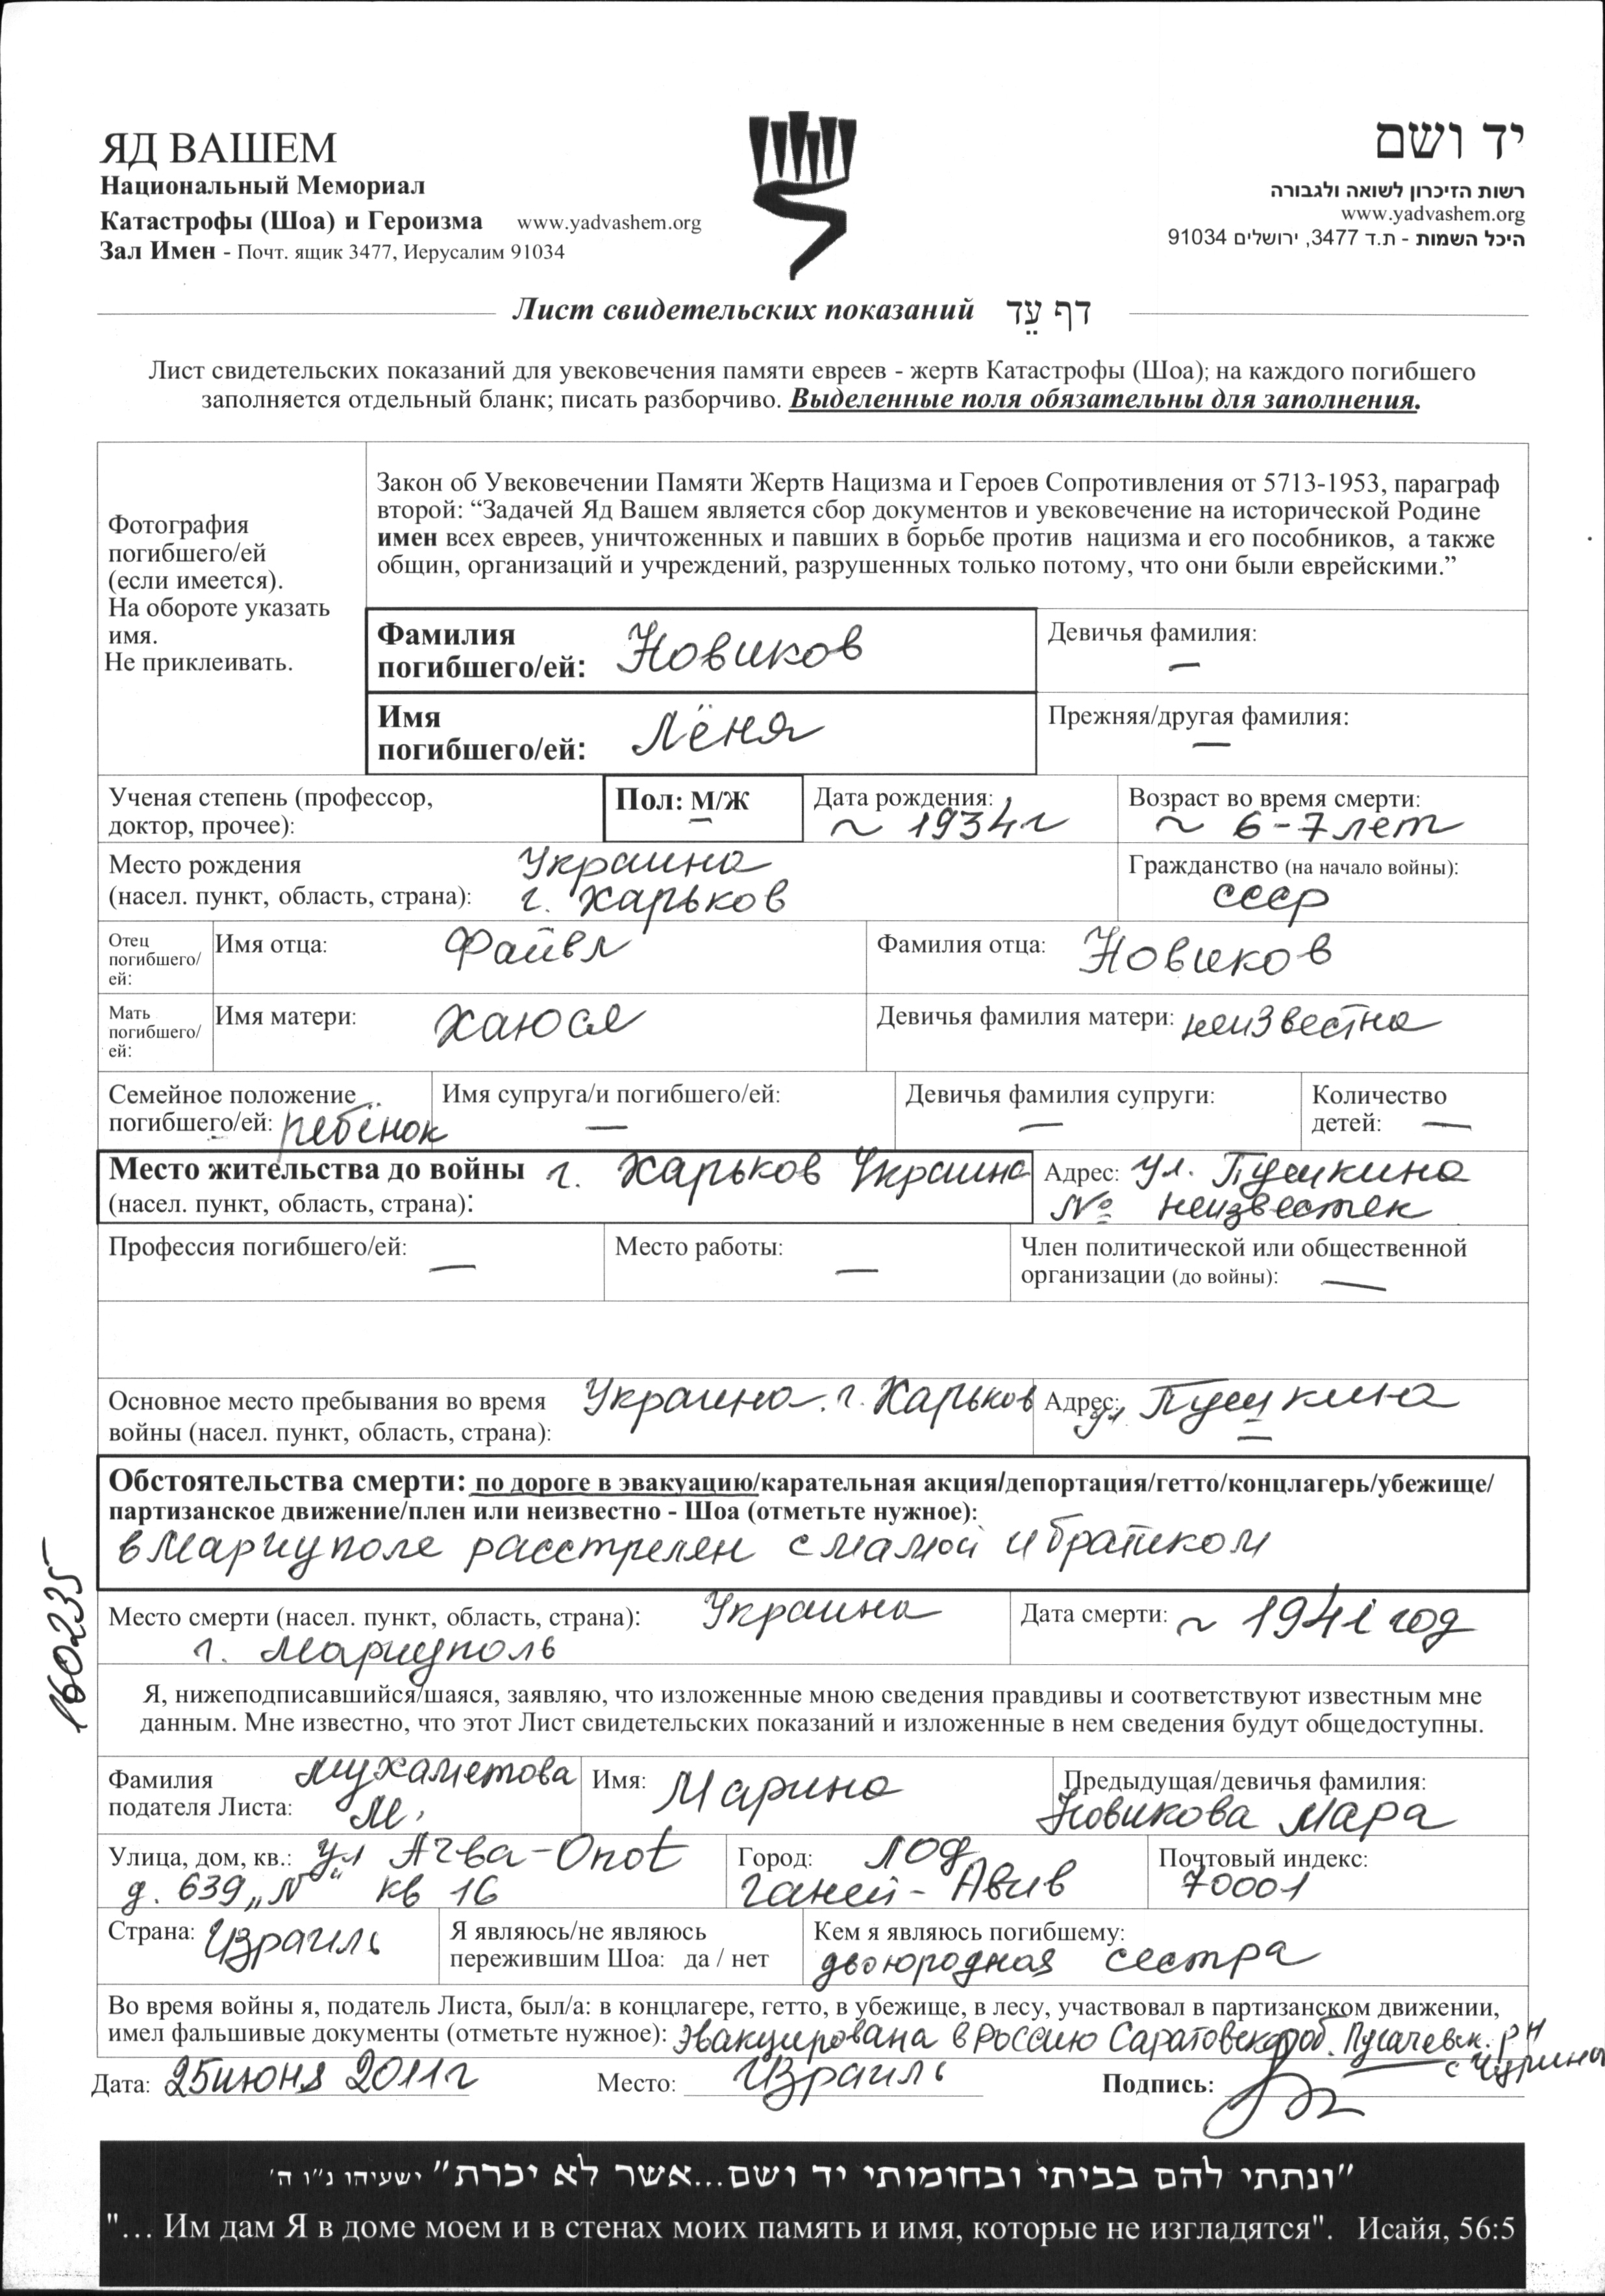 ЯД ВАШЕМ
Национальный Мемориал
Катастрофы (Шоа) и Героизма www.yadvashem.org
Зал Имен - Почт. ящик 3477, Иерусалим 91034
יד ושם
רשות הזיכרון לשואה ולגבורה
www.yadvashem.org
היכל השמות - ת.ד 3477, ירושלים 91034
Лист свидетельских показаний דף עֵד
Лист свидетельских показаний для увековечения памяти евреев - жертв Катастрофы (Шоа); на каждого погибшего
заполняется отдельный бланк; писать разборчиво. Выделенные поля обязательны для заполнения.
Фотография
погибшего/ей
(если имеется).
На обороте указать
имя.
Не приклеивать.
Закон об Увековечении Памяти Жертв Нацизма и Героев Сопротивления от 5713-1953, параграф
второй: “Задачей Яд Вашем является сбор документов и увековечение на исторической Родине
имен всех евреев, уничтоженных и павших в борьбе против нацизма и его пособников, а также
общин, организаций и учреждений, разрушенных только потому, что они были еврейскими.”
Фамилия
погибшего/ей: Новиков
Девичья фамилия:
—
Имя
погибшего/ей: Лёня
Прежняя/другая фамилия:
—
Ученая степень (профессор,
доктор, прочее):
Пол: М/Ж
Дата рождения:
~ 1934г
Возраст во время смерти:
~ 6-7 лет
Место рождения Украина
(насел. пункт, область, страна): г. Харьков
Гражданство (на начало войны):
СССР
Отец
погибшего/
ей:
Имя отца: Файвл
Фамилия отца: Новиков
Мать
погибшего/
ей:
Имя матери: Хаюся
Девичья фамилия матери: неизвестна
Семейное положение
погибшего/ей: ребёнок
Имя супруга/и погибшего/ей:
—
Девичья фамилия супруги:
—
Количество
детей: —
Место жительства до войны г. Харьков Украина
(насел. пункт, область, страна):
Адрес: ул. Пушкина
№ неизвестен
Профессия погибшего/ей: —
Место работы: —
Член политической или общественной
организации (до войны): —
Основное место пребывания во время Украина. г. Харьков
войны (насел. пункт, область, страна):
Адрес: ул. Пушкина
—
Обстоятельства смерти: по дороге в эвакуацию/карательная акция/депортация/гетто/концлагерь/убежище/
партизанское движение/плен или неизвестно - Шоа (отметьте нужное):
в Мариуполе расстрелян с мамой и братиком
Место смерти (насел. пункт, область, страна): Украина
г. Мариуполь
Дата смерти: ~ 1941 год
160235
Я, нижеподписавшийся/шаяся, заявляю, что изложенные мною сведения правдивы и соответствуют известным мне
данным. Мне известно, что этот Лист свидетельских показаний и изложенные в нем сведения будут общедоступны.
Фамилия Мухаметова
подателя Листа: М.
Имя: Марина
Предыдущая/девичья фамилия:
Новикова Мара
Улица, дом, кв.: ул Ахва-Onot
д. 639 „N" кв 16
Город: Лод
Ганей-Авив
Почтовый индекс:
70001
Страна: Израиль
Я являюсь/не являюсь
пережившим Шоа: да / нет
Кем я являюсь погибшему:
двоюродная сестра
Во время войны я, податель Листа, был/а: в концлагере, гетто, в убежище, в лесу, участвовал в партизанском движении,
имел фальшивые документы (отметьте нужное): Эвакуирована в Россию Саратовскую об. Пугачевск. рН
Дата: 25 июня 2011г
Место: Израиль
Подпись:
"ונתתי להם בביתי ובחומותי יד ושם...אשר לא יכרת" ישעיהו נ"ו ה'
"… Им дам Я в доме моем и в стенах моих память и имя, которые не изгладятся". Исайя, 56:5